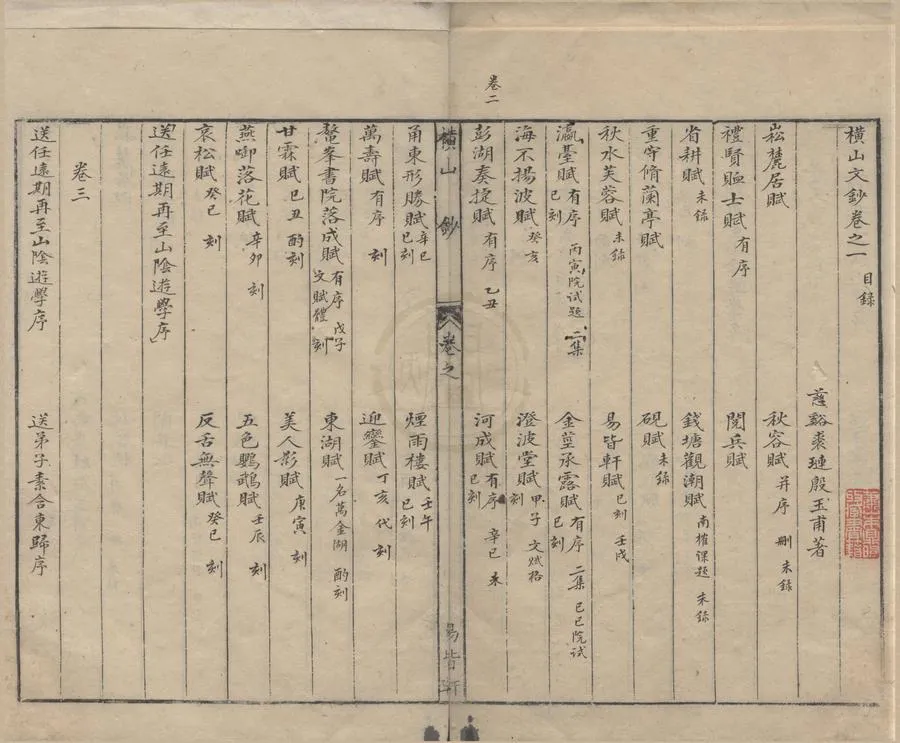 橫山文鈔卷之一 目錄
慈谿裘璉殷玉甫著
崧麓居賦
秋容賦 并序 刪 未錄
禮賢賑士賦 有序
閱兵賦
省耕賦 未錄
錢塘觀潮賦 南榷課題 未錄
重寺脩蘭亭賦
硯賦 未錄
秋水芙蓉賦 未錄
易皆軒賦 已刻 壬戌
卷二
瀛臺賦 有序 已刻 丙寅院試題 二集
金莖承露賦 有序 二集 己巳院試
海不揚波賦 癸亥
澄波堂賦 甲子 文賦格 刻
彭湖奏捷賦 有序 乙丑
河成賦 有序 已刻 辛巳 未
橫山 鈔
卷之
易皆軒
甬東形勝賦 辛巳 已刻
煙雨樓賦 壬午 已刻
萬壽賦 有序 刻
迎鑾賦 丁亥 代 刻
鰲峯書院落成賦 有序 戊子 文賦體 刻
東湖賦 一名萬金湖 酌刻
甘霖賦 己丑 酌刻
美人影賦 庚寅 刻
燕啣落花賦 辛卯 刻
五色鸚鵡賦 壬辰 刻
哀松賦 癸巳 刻
反舌無聲賦 癸巳 刻
送任遠期再至山陰遊學序
卷三
送任遠期再至山陰遊學序
送弟子素含東歸序